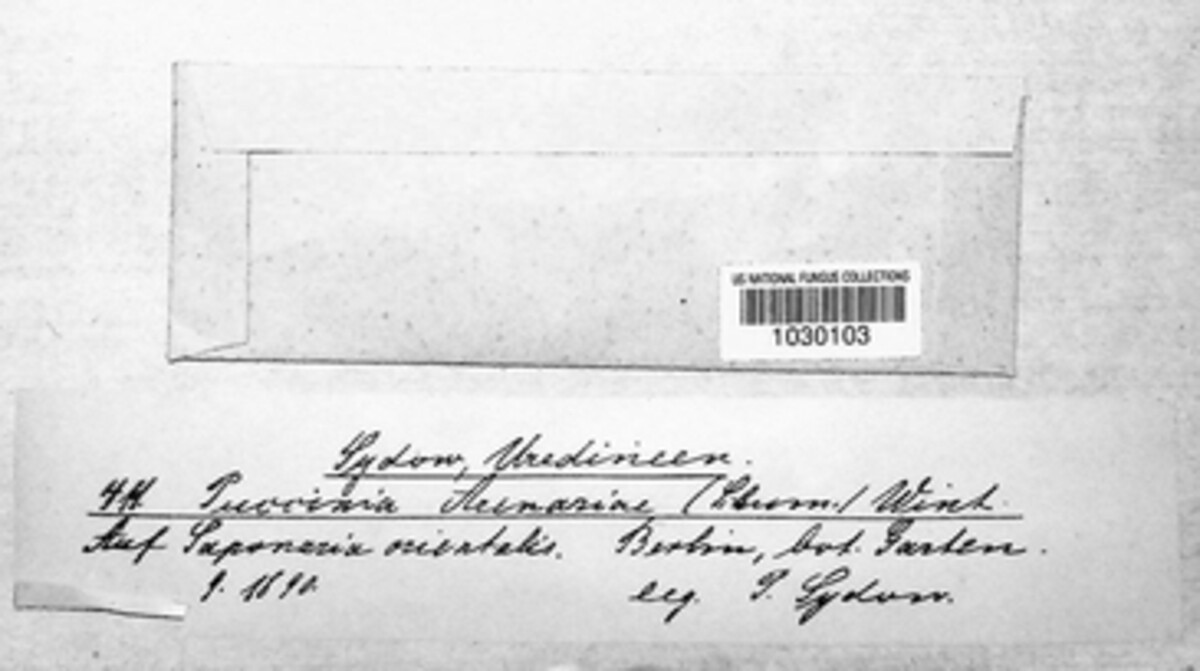 US NATIONAL FUNGUS COLLECTIONS
1030103
Sydow, Uredineen.
Puccinia Arenariae (Schum.) Wint.
Auf Saponaria orientalis. Berlin, bot. Garten.
9. 1890.
leg. P. Sydow.